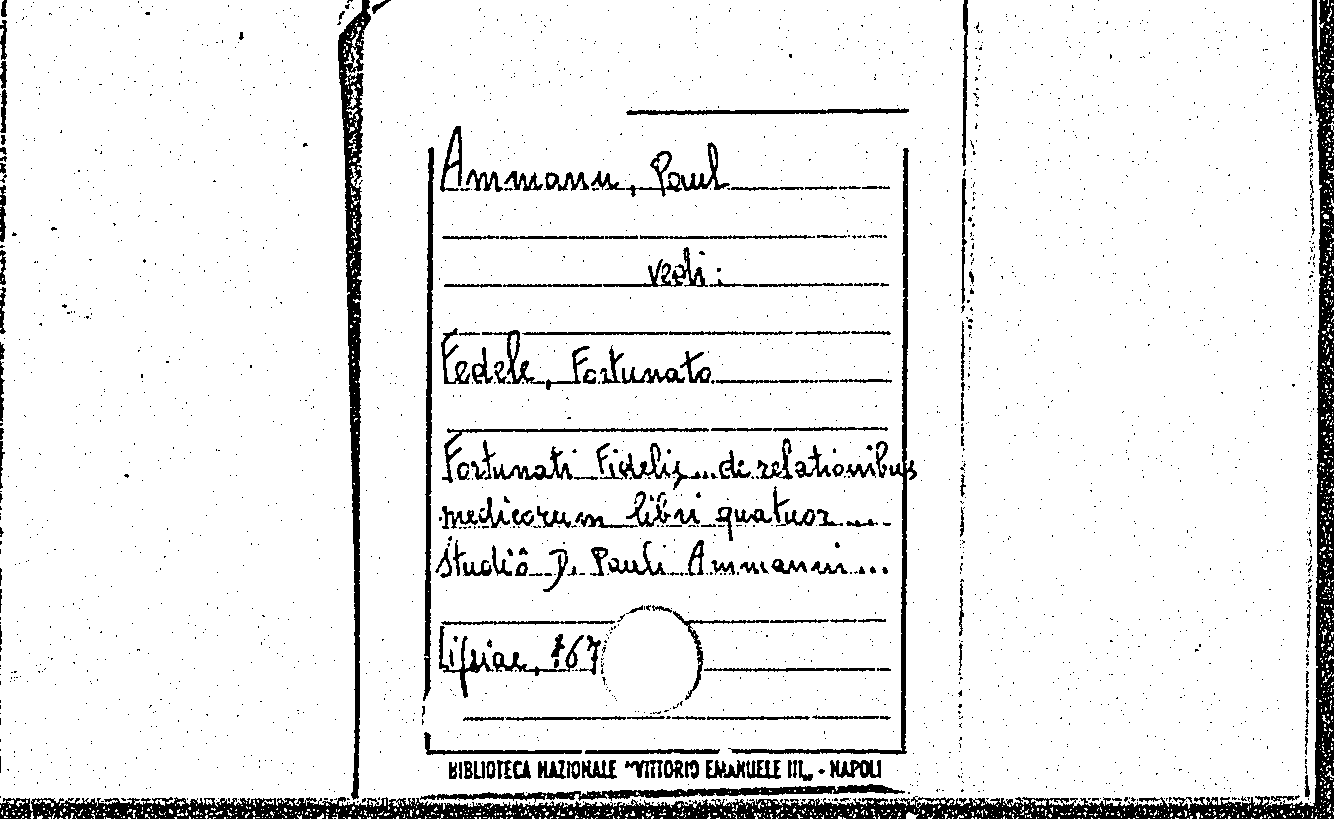 Ammann, Paul
vedi:
Fedele, Fortunato
Fortunati Fidelis... de relationibus
medicorum libri quatuor ....
Studiô D. Pauli Ammanni...
Lipsiae, 167
BIBLIOTECA NAZIONALE "VITTORIO EMANUELE III„ - NAPOLI